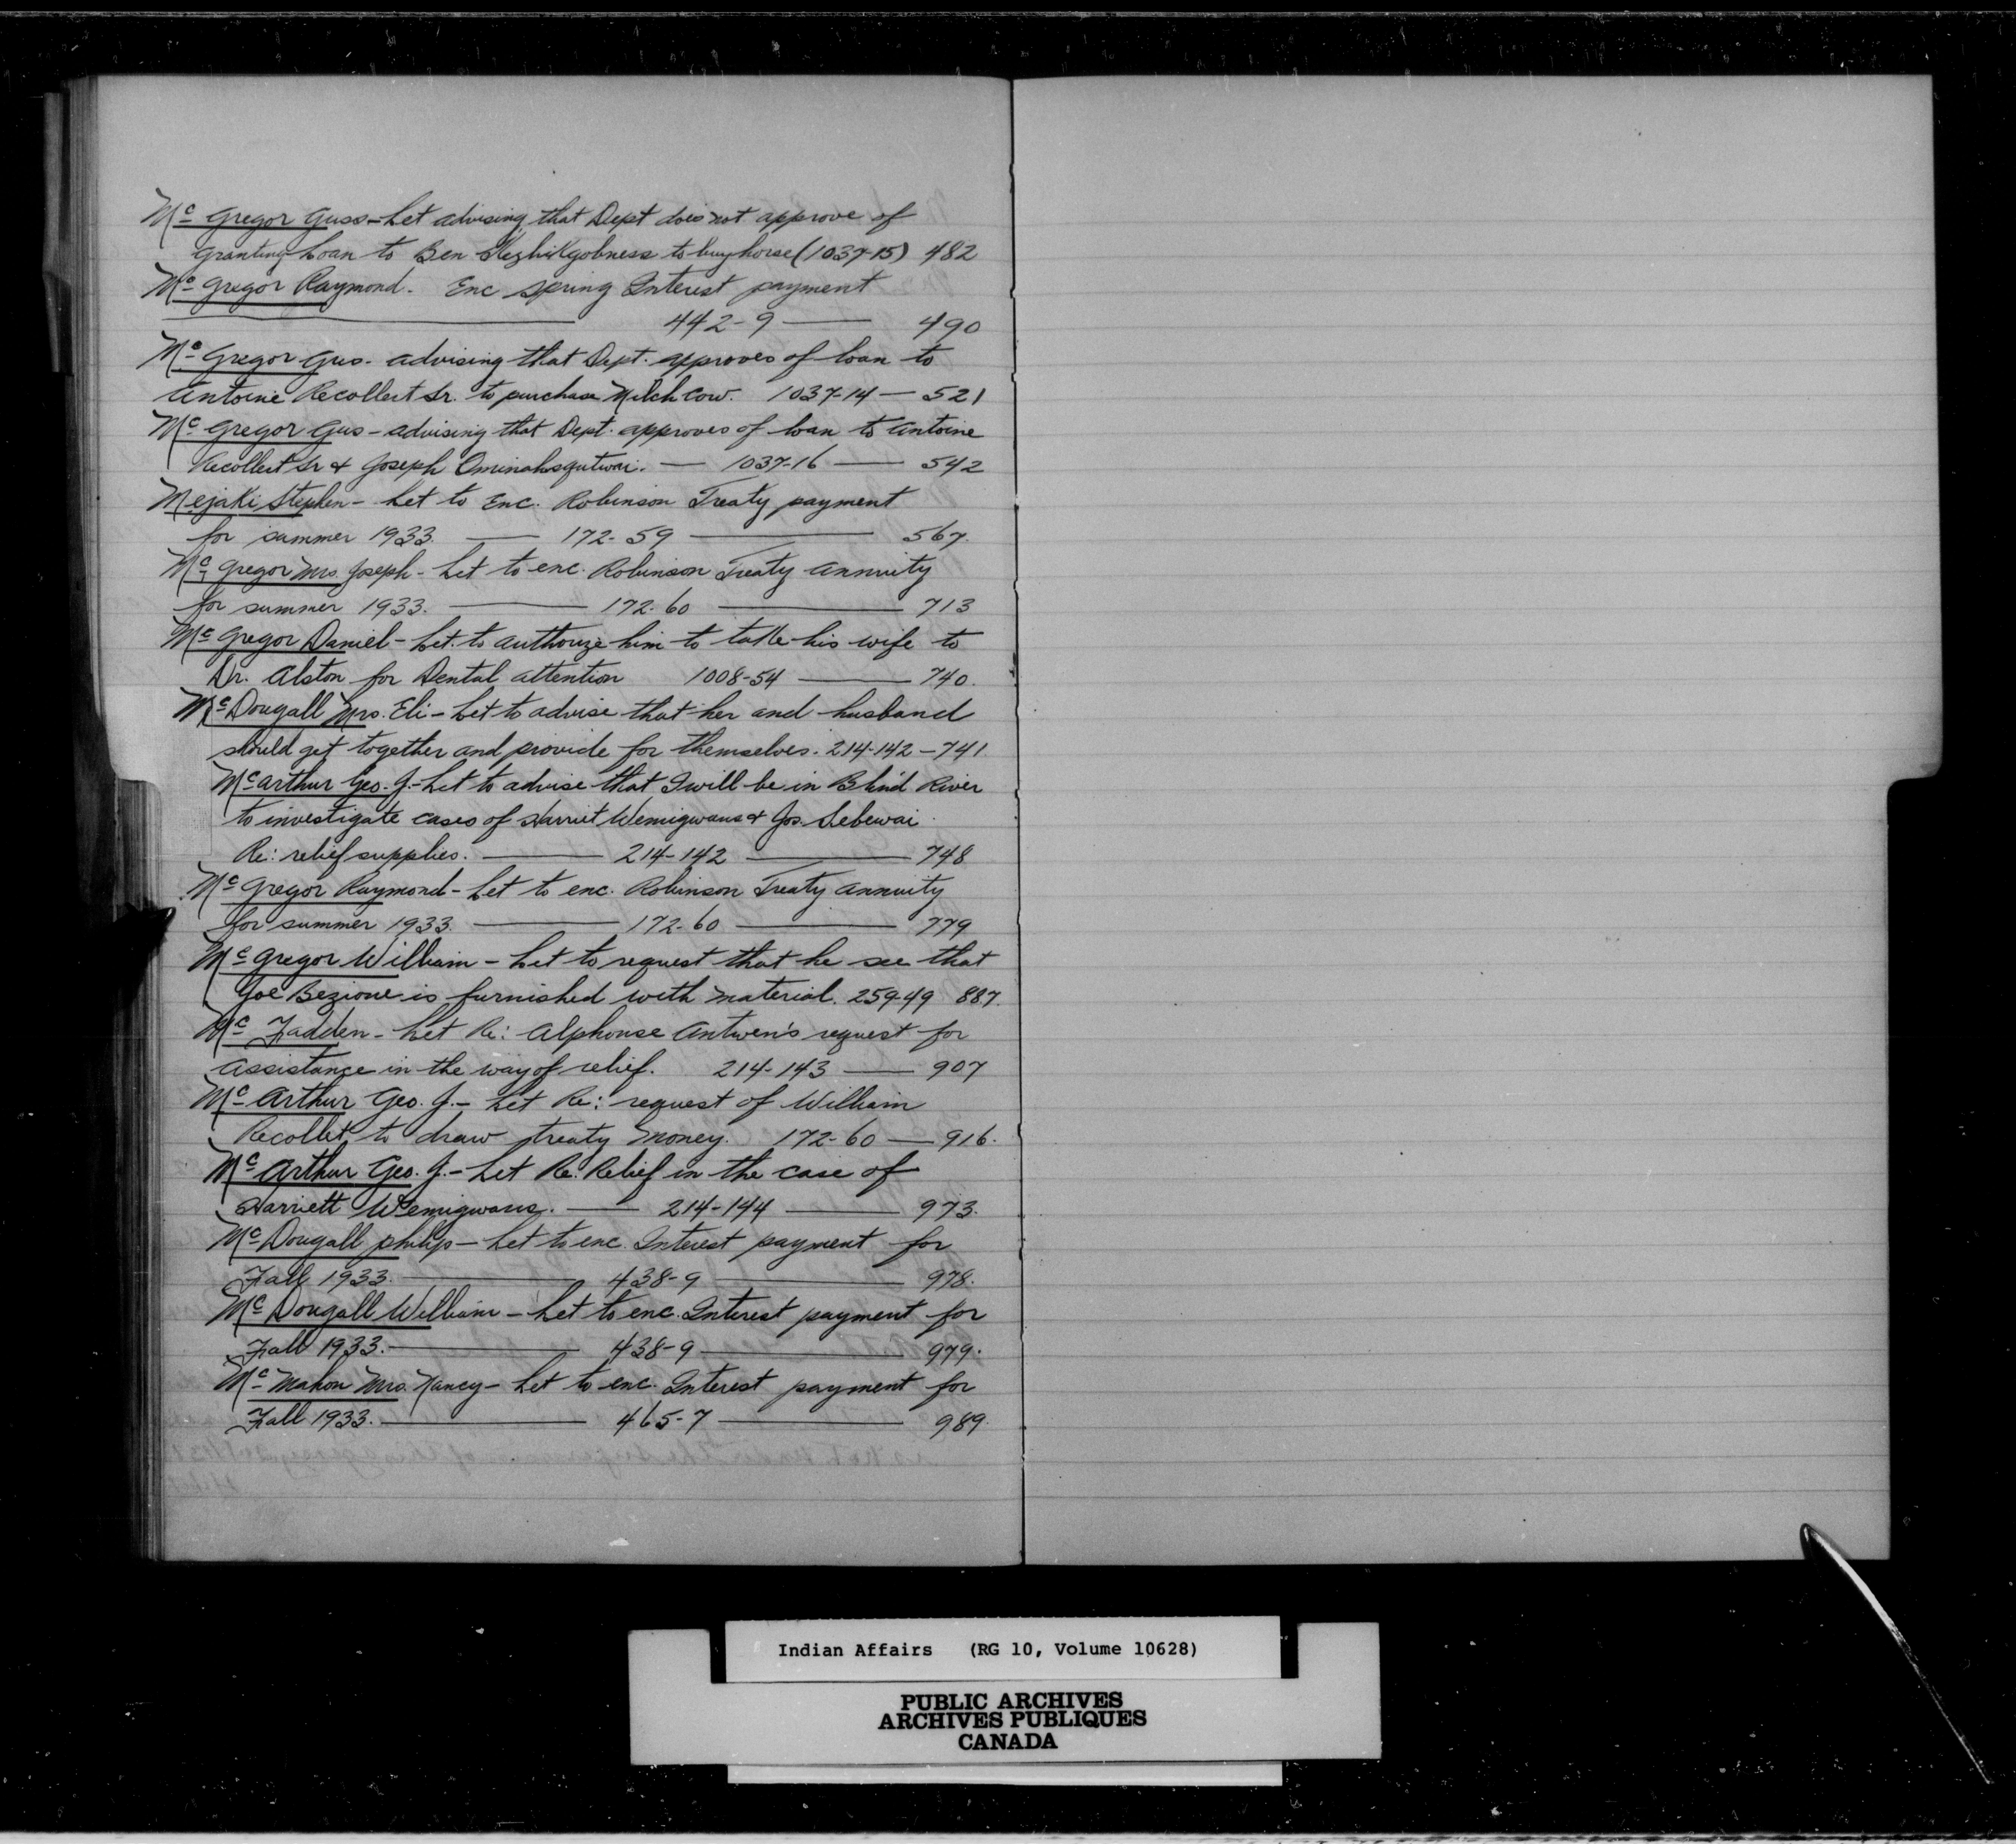 Mc Gregor Guss - Let advising that Dept does not approve of
granting Loan to Ben to buy horse (1037-15) 482
Mc Gregor Raymond. Enc spring Interest payment
442-9 — 490
Mc Gregor Gus. advising that Dept. approves of loan to
Antoine Recollect Sr. to purchase Milch Cow. 1037-14 — 521
Mc Gregor Gus - advising that Dept. approves of loan to Antoine
Recollect Sr & Joseph — 1037-16 — 542
Mejaki Stephen - Let to Enc. Robinson Treaty payment
for summer 1933. — 172-59 — 567.
Mc Gregor Mrs. Joseph - Let to enc. Robinson Treaty annuity
for summer 1933. — 172-60 — 713
Mc Gregor Daniel - Let. to authorize him to take his wife to
Dr. Alston for Dental attention 1008-54 — 740.
Mc Dougall Mrs. Eli - Let to advise that her and husband
should get together and provide for themselves. 214-142 - 741.
Mc Arthur Geo. J. - Let to advise that I will be in Blind River
to investigate cases of Harriet Wemigwans & Jos. Sebewai
Re: relief supplies. — 214-142 — 748
Mc Gregor Raymond - Let to enc. Robinson Treaty annuity
for summer 1933. — 172-60 — 779
Mc Gregor William - Let to request that he see that
Joe Bezione is furnished with material. 259-49 887.
Mc Fadden - Let Re: Alphonse Antwen's request for
assistance in the way of relief. 214-143 — 907
Mc Arthur Geo. J. - Let Re: request of William
Recollet to draw treaty money. 172-60 — 916.
Mc Arthur Geo. J. - Let Re: Relief in the case of
Harriett Wemigwans. — 214-144 — 973.
Mc Dougall Philip - Let to enc. Interest payment for
Fall 1933. — 438-9 — 978.
Mc Dougall William - Let to enc. Interest payment for
Fall 1933. — 438-9 — 979.
Mc Mahon Mrs. Nancy - Let to enc. Interest payment for
Fall 1933. — 465-7 — 989.
Indian Affairs (RG 10, Volume 10628)
PUBLIC ARCHIVES
ARCHIVES PUBLIQUES
CANADA